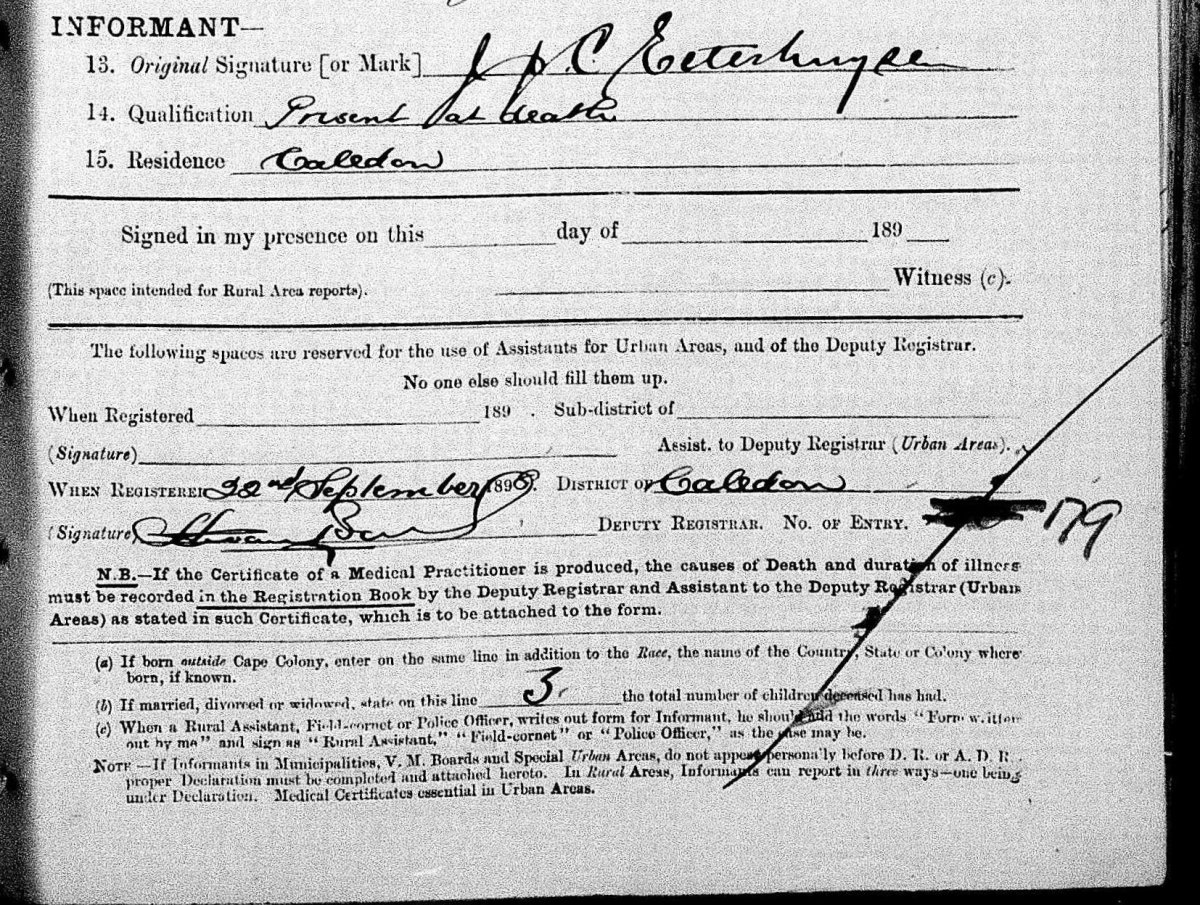 INFORMANT—
13. Original Signature [or Mark] J P C Esterhuysen
14. Qualification Present at death
15. Residence Caledon
Signed in my presence on this day of 189
Witness (c).
(This space intended for Rural Area reports).
The following spaces are reserved for the use of Assistants for Urban Areas, and of the Deputy Registrar.
No one else should fill them up.
When Registered 189 . Sub-district of
(Signature) Assist. to Deputy Registrar (Urban Areas).
WHEN REGISTERED 22nd September 1898. DISTRICT OF Caledon
(Signature DEPUTY REGISTRAR. NO. OF ENTRY. 179
N.B.—If the Certificate of a Medical Practitioner is produced, the causes of Death and duration of illness
must be recorded in the Registration Book by the Deputy Registrar and Assistant to the Deputy Registrar (Urban
Areas) as stated in such Certificate, which is to be attached to the form.
(a) If born outside Cape Colony, enter on the same line in addition to the Race, the name of the Country, State or Colony where
born, if known.
(b) If married, divorced or widowed, state on this line 3. the total number of children deceased has had.
(c) When a Rural Assistant, Field-cornet or Police Officer, writes out form for Informant, he should add the words "Form written
out by me" and sign as "Rural Assistant," "Field-cornet" or "Police Officer," as the case may be.
NOTE—If Informants in Municipalities, V. M. Boards and Special Urban Areas, do not appear personally before D. R. or A. D. R.
proper Declaration must be completed and attached hereto. In Rural Areas, Informants can report in three ways—one being
under Declaration. Medical Certificates essential in Urban Areas.